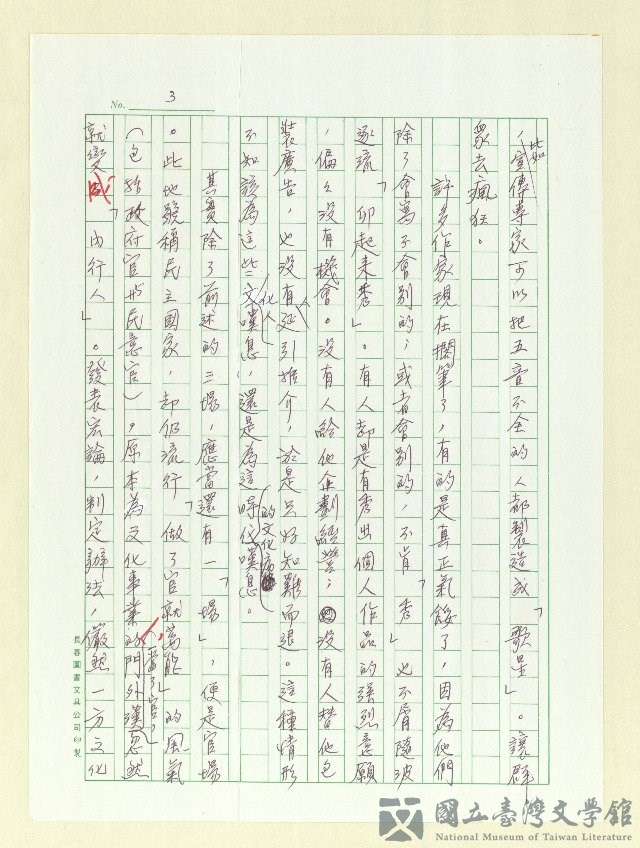 No. 3
，此如宣傳專家可以把五音不全的人都製造成「歌星」。讓群
眾去瘋狂。
許多作家現在擱筆了，有的是真正氣餒了，因為他們
除了會寫不會別的；或者會別的，不肯「秀」也不屑隨波
逐流「卯起來秀」。有人却是有秀出個人作品的強烈意願
，偏々沒有機會。沒有人給他企劃經營；沒有人替他包
裝廣告，也沒有人延引推介，於是只好知難而退。這種情形
不知該為這些文化人嘆息，還是為這時代的文化病嘆息。
其實除了前述的三場，應當還有一「場」，便是官場
。此地號稱民主國家，却仍流行「做了官就萬能」的風氣
（包括政府官或民意官），原本為文化事業的門外漢，當了官，忽然
就變成「內行人」。發表宏論，制定辦法，儼然一方文化
長春圖畫文具公司印製
國立臺灣文學館
National Museum of Taiwan Literature